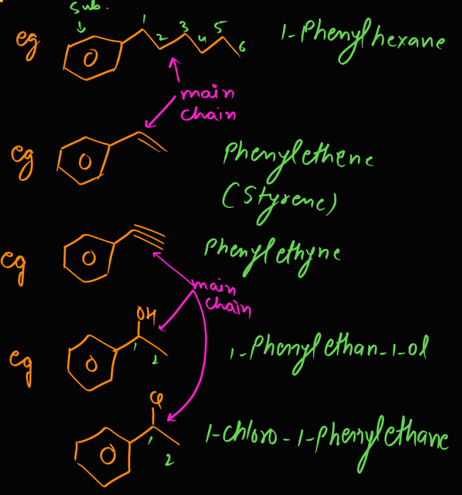 Sub.
eg 1 2 3 4 5 6 1-Phenylhexane
main
chain
eg Phenylethene
(Styrene)
eg Phenylethyne
main
chain
OH
eg 1 2 1-Phenylethan-1-ol
Cl
1 2 1-Chloro-1-phenylethane